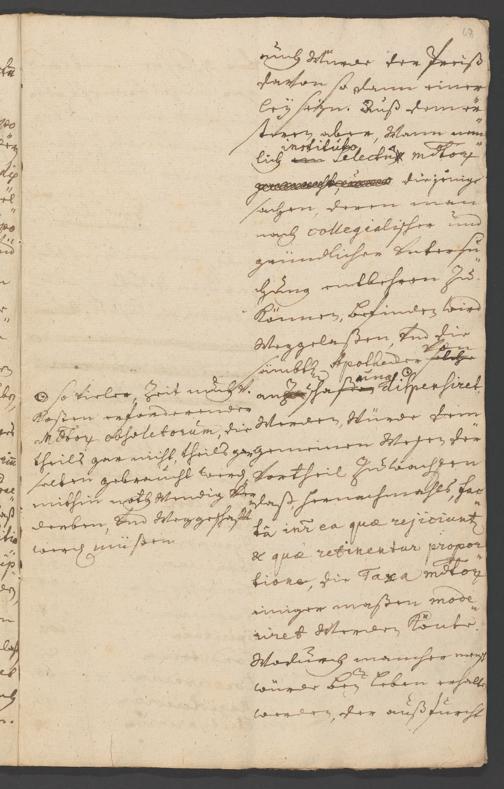 68
auch würde der Preiß
davon so dann einer
ley seyn. Auß dem er
stern aber, wann nem
lich instituto Selectu mdtor
diejenige
sachen, deren man
nach collegialischer und
gründlicher Untersu
chung entbehren zu
können, befinden wird
weggelaßen, und die
sämbtl. Apothecker von
anzuschaffen und dispensiret
werden, würde dem
gemeinen Wesen der
Vortheil zuwachsen
daß hernachmahls, fac
ta inter ea quæ rejiciunt
& quæ retinentur propor
tione, die Taxa mdtor
einiger maßen mode
riret werden könte.
Wodurch mancher mensch
würde bey leben erhalten
werden, der auß furcht
so vieler, Zeit und
Kosten erforderender
mdtor obsoletorum, die
theils gar nicht, theils gar
selten gebraucht werd
mithin nothwendig ver
derben, und weggeschafft
werd müßen